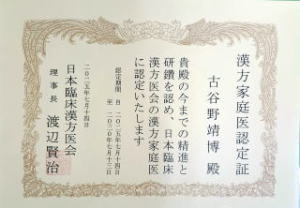 漢方家庭医認定証
古谷野靖博 殿
貴殿の今までの精進と
研鑽を認め、日本臨床
漢方医会の漢方家庭医
に認定いたします
認定期間 自 二〇二五年七月十四日
至 二〇三〇年七月十三日
二〇二五年七月十四日
日本臨床漢方医会
理事長 渡辺賢治